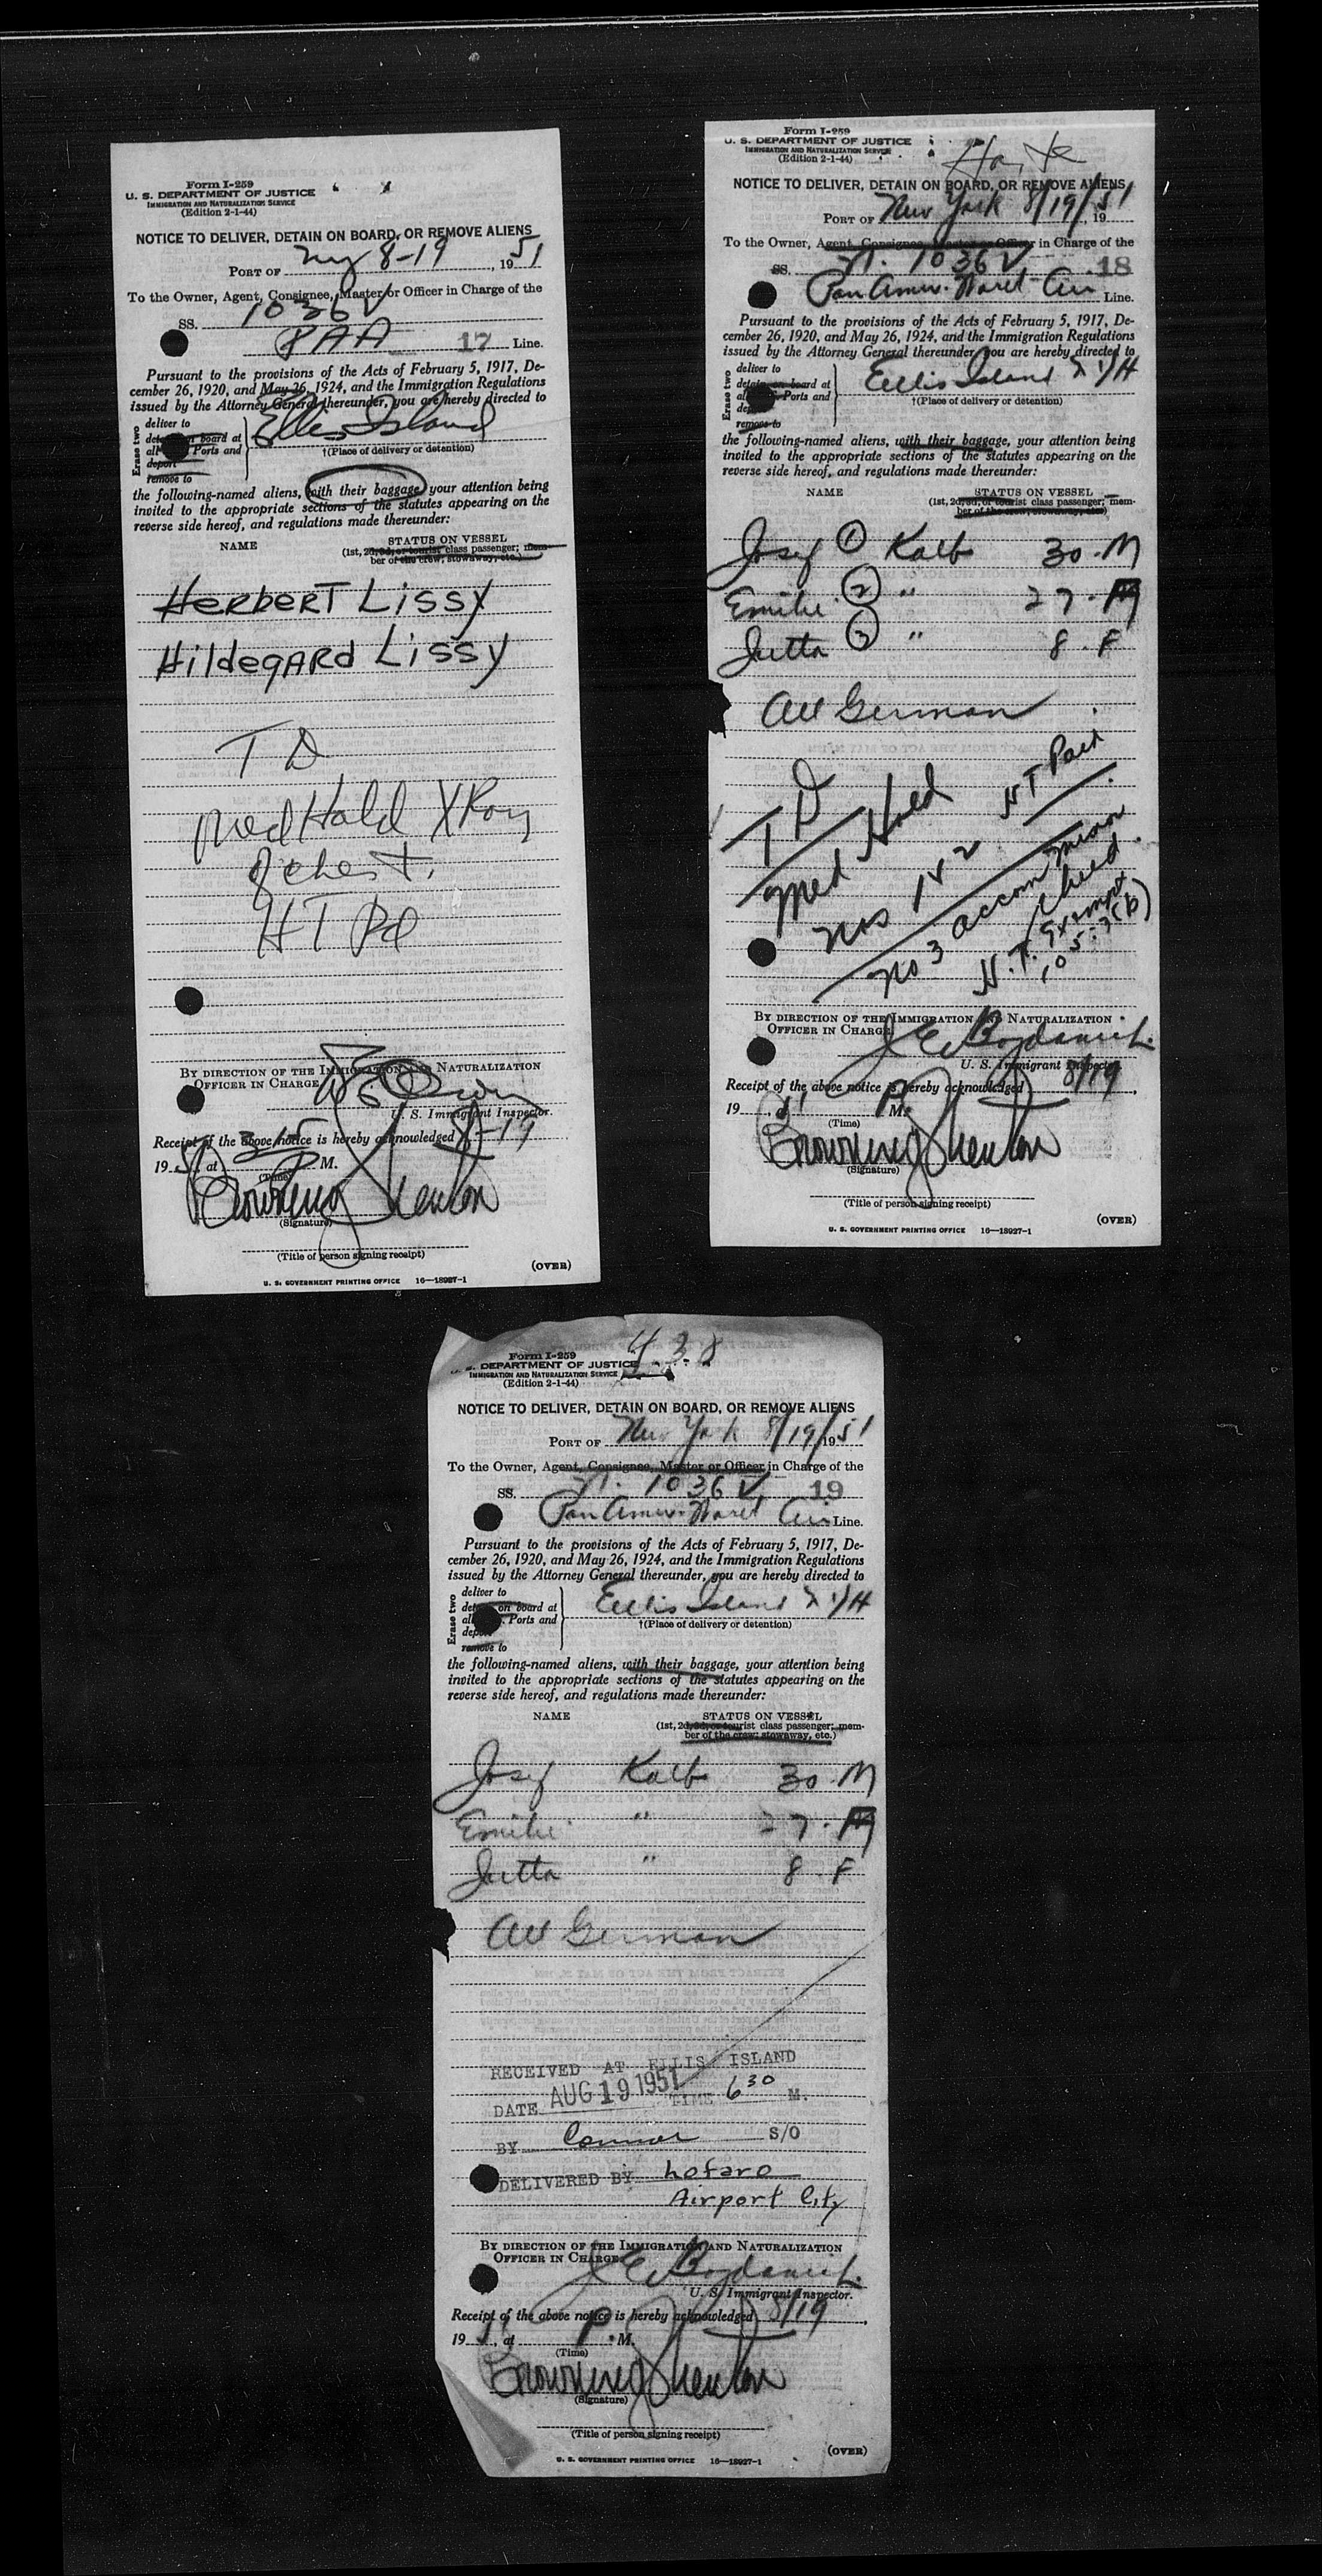 Form I-259
U. S. DEPARTMENT OF JUSTICE
IMMIGRATION AND NATURALIZATION SERVICE
(Edition 2-1-44)
NOTICE TO DELIVER, DETAIN ON BOARD, OR REMOVE ALIENS
PORT OF NY 8-19, 1951
To the Owner, Agent, Consignee, Master or Officer in Charge of the
SS. 1036V
PAA 17 Line.
Pursuant to the provisions of the Acts of February 5, 1917, De-
cember 26, 1920, and May 26, 1924, and the Immigration Regulations
issued by the Attorney General thereunder, you are hereby directed to
Erase two
deliver to
detain on board at
all Ports and
deport
remove to
Ellis Island
†(Place of delivery or detention)
the following-named aliens, with their baggage, your attention being
invited to the appropriate sections of the statutes appearing on the
reverse side hereof, and regulations made thereunder:
NAME STATUS ON VESSEL
(1st, 2d, 3d, or tourist class passenger; mem-
ber of the crew; stowaway, etc.)
Herbert Lissy
Hildegard Lissy
T D
Med Hold X Ray
of chest.
HT Pd
BY DIRECTION OF THE IMMIGRATION AND NATURALIZATION
OFFICER IN CHARGE
U. S. Immigrant Inspector.
Receipt of the above notice is hereby acknowledged 8-19
1951, at 3 15 P M.
(Time)
Browning Kenton
(Signature)
(Title of person signing receipt)
(OVER)
U. S. GOVERNMENT PRINTING OFFICE 16—18927-1
Form I-259
U. S. DEPARTMENT OF JUSTICE
IMMIGRATION AND NATURALIZATION SERVICE
(Edition 2-1-44)
NOTICE TO DELIVER, DETAIN ON BOARD, OR REMOVE ALIENS
PORT OF New York 8/19/ 1951
To the Owner, Agent, Consignee, Master or Officer in Charge of the
SS. Fl. 1036 V 18
Pan Amer. World Air Line.
Pursuant to the provisions of the Acts of February 5, 1917, De-
cember 26, 1920, and May 26, 1924, and the Immigration Regulations
issued by the Attorney General thereunder, you are hereby directed to
Erase two
deliver to
detain on board at
all U.S. Ports and
deport
remove to
Ellis Island
†(Place of delivery or detention)
the following-named aliens, with their baggage, your attention being
invited to the appropriate sections of the statutes appearing on the
reverse side hereof, and regulations made thereunder:
NAME STATUS ON VESSEL
(1st, 2d, 3d, or tourist class passenger; mem-
ber of the crew; stowaway, etc.)
Josef 1 Kalb 30 . M
Emilie 2 " 27 . F
Jutta 3 " 8 . F
All German
T D
Med Hold
HT Paid
Nos 1 & 2
No 3 accom minor child
H.T. Exempt
105.3(b)
BY DIRECTION OF THE IMMIGRATION AND NATURALIZATION
OFFICER IN CHARGE
J E Bogdanich
U. S. Immigrant Inspector.
Receipt of the above notice is hereby acknowledged 8/19
1951 P M.
(Time)
Browning Kenton
(Signature)
(Title of person signing receipt)
(OVER)
U. S. GOVERNMENT PRINTING OFFICE 16—18927-1
438
Form I-259
U. S. DEPARTMENT OF JUSTICE
IMMIGRATION AND NATURALIZATION SERVICE
(Edition 2-1-44)
NOTICE TO DELIVER, DETAIN ON BOARD, OR REMOVE ALIENS
PORT OF New York 8/19/ 1951
To the Owner, Agent, Consignee, Master or Officer in Charge of the
SS. Fl. 1036 V 19
Pan Amer. World Air Line.
Pursuant to the provisions of the Acts of February 5, 1917, De-
cember 26, 1920, and May 26, 1924, and the Immigration Regulations
issued by the Attorney General thereunder, you are hereby directed to
Erase two
deliver to
detain on board at
all U.S. Ports and
deport
remove to
Ellis Island
†(Place of delivery or detention)
the following-named aliens, with their baggage, your attention being
invited to the appropriate sections of the statutes appearing on the
reverse side hereof, and regulations made thereunder:
NAME STATUS ON VESSEL
(1st, 2d, 3d, or tourist class passenger; mem-
ber of the crew; stowaway, etc.)
Josef Kalb 30 . M
Emilie " 27 . F
Jutta " 8 . F
All German
RECEIVED AT ELLIS ISLAND
DATE AUG 19 1951 TIME 6 30 M.
BY Connor S/O
DELIVERED BY Lofaro
Airport City
BY DIRECTION OF THE IMMIGRATION AND NATURALIZATION
OFFICER IN CHARGE
J E Bogdanich
U. S. Immigrant Inspector.
Receipt of the above notice is hereby acknowledged 8/19
1951, at P M.
(Time)
Browning Kenton
(Signature)
(Title of person signing receipt)
(OVER)
U. S. GOVERNMENT PRINTING OFFICE 16—18927-1